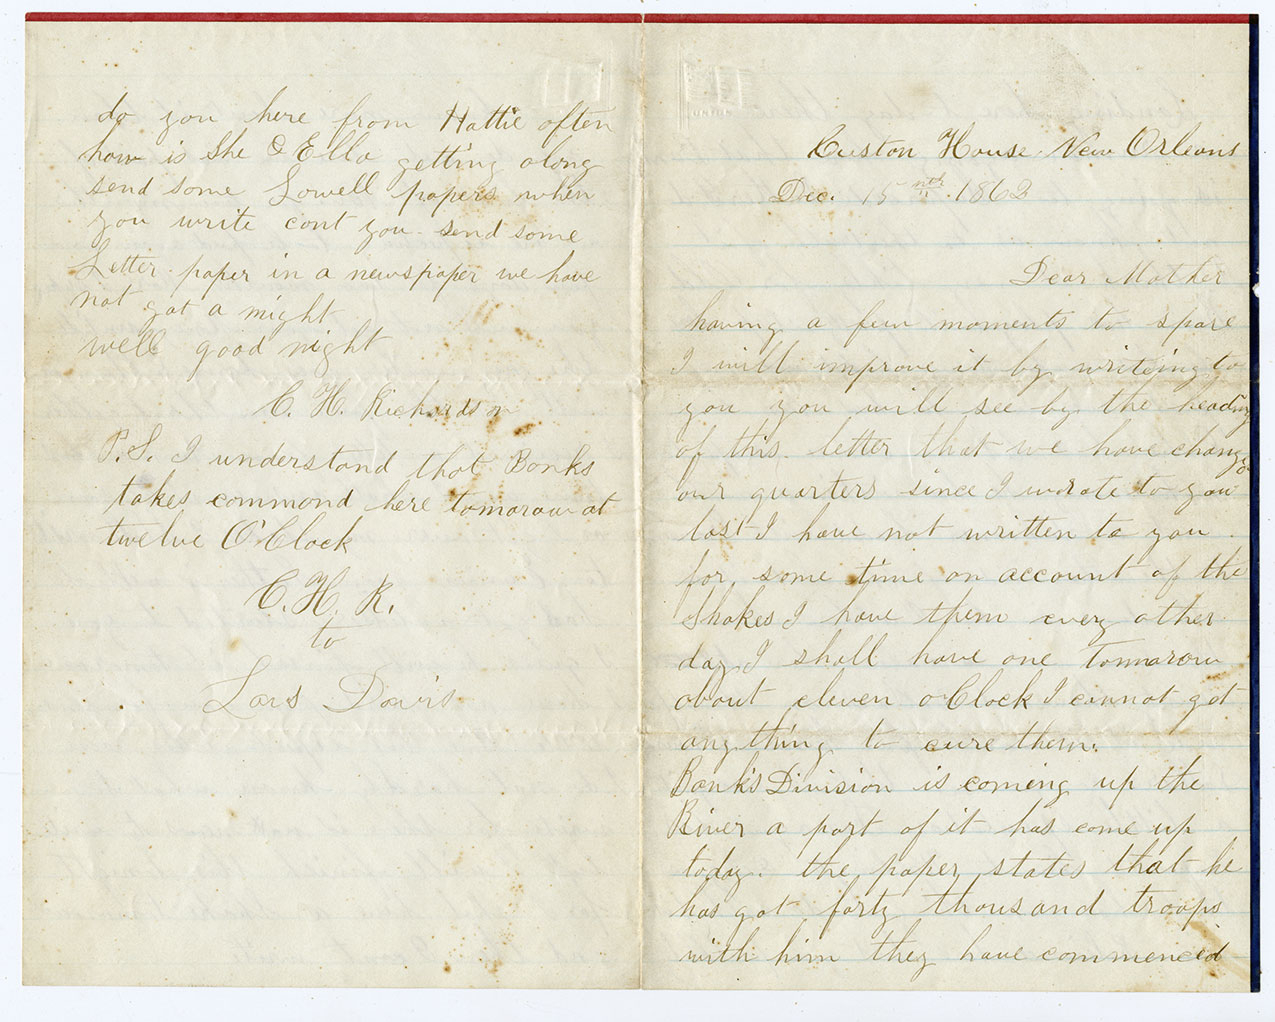 Custon House New Orleans
Dec. 15 nth 1862
Dear Mother
having a few moments to spare
I will improve it by writeing to
you you will see by the heading
of this letter that we have change
our quarters since I wrote to you
last I have not written to you
for some time on account of the
Shakes I have them every other
day I shall have one tomarow
about eleven oClock I cannot get
any thing to cure them.
Bank's Division is coming up the
River a part of it has come up
today. the paper states that he
has got forty thousand troops
with him they have commenced
do you here from Hattie often
how is She & Ella getting along
send some Lowell papers when
you write cont you send some
Letter paper in a newspaper we have
not got a might
well good night
C. H. Richardson
P.S. I understand that Banks
takes commond here tomarow at
twelve O'Clock
C. H. R.
to
Lois Davis